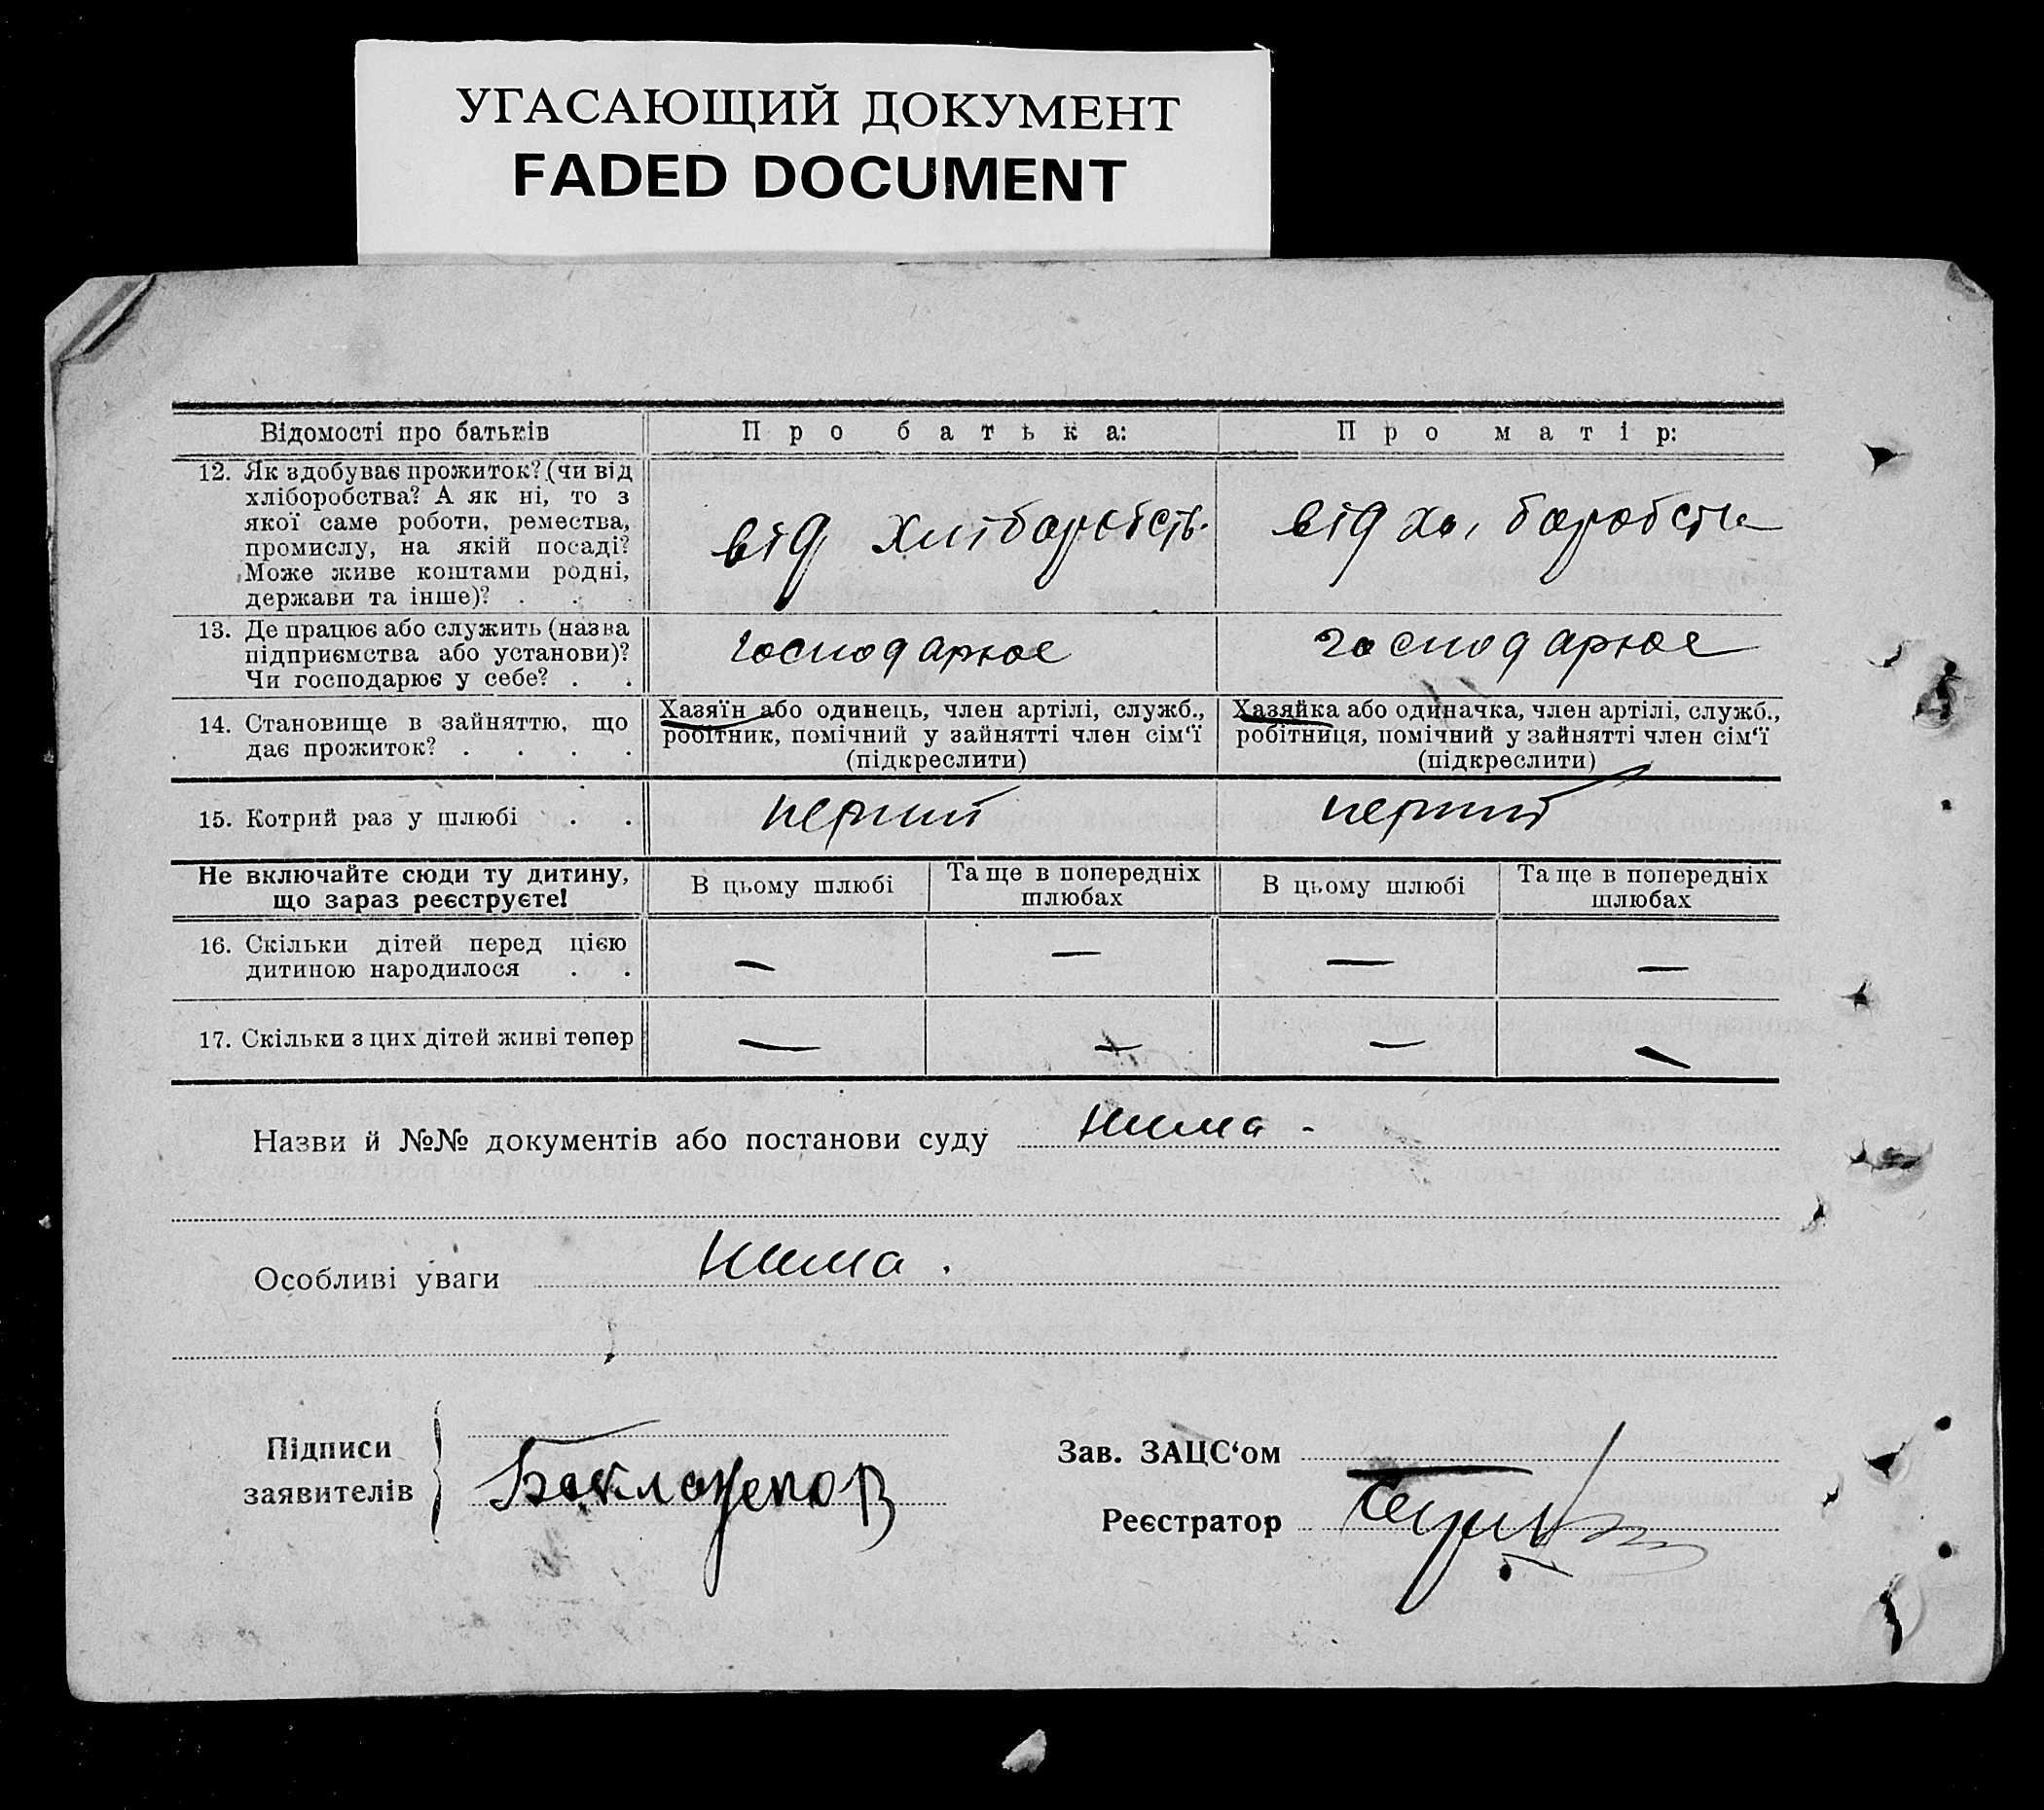 УГАСАЮЩИЙ ДОКУМЕНТ
FADED DOCUMENT
Відомості про батьків
Про батька:
Про матір:
12. Як здобуває прожиток? (чи від
хліборобства? А як ні, то з
якої саме роботи, ремества,
промислу, на якій посаді?
Може живе коштами родні,
держави та інше)? . . .
від
від
13. Де працює або служить (назва
підприємства або установи)?
Чи господарює у себе? . .
господарює
господарює
14. Становище в зайняттю, що
дає прожиток? . . . .
Хазяїн або одинець, член артілі, служб.,
робітник, помічний у зайнятті член сім‘ї
(підкреслити)
Хазяйка або одиначка, член артілі, служб.,
робітниця, помічний у зайнятті член сім‘ї
(підкреслити)
15. Котрий раз у шлюбі . .
перший
перший
Не включайте сюди ту дитину,
що зараз реєструєте!
В цьому шлюбі
Та ще в попередніх
шлюбах
В цьому шлюбі
Та ще в попередніх
шлюбах
16. Скільки дітей перед цією
дитиною народилося . .
— — — —
17. Скільки з цих дітей живі тепер
— — — —
Назви й №№ документів або постанови суду нима -
Особливі уваги нима.
Підписи
заявителів
Зав. ЗАЦС‘ом
Реєстратор